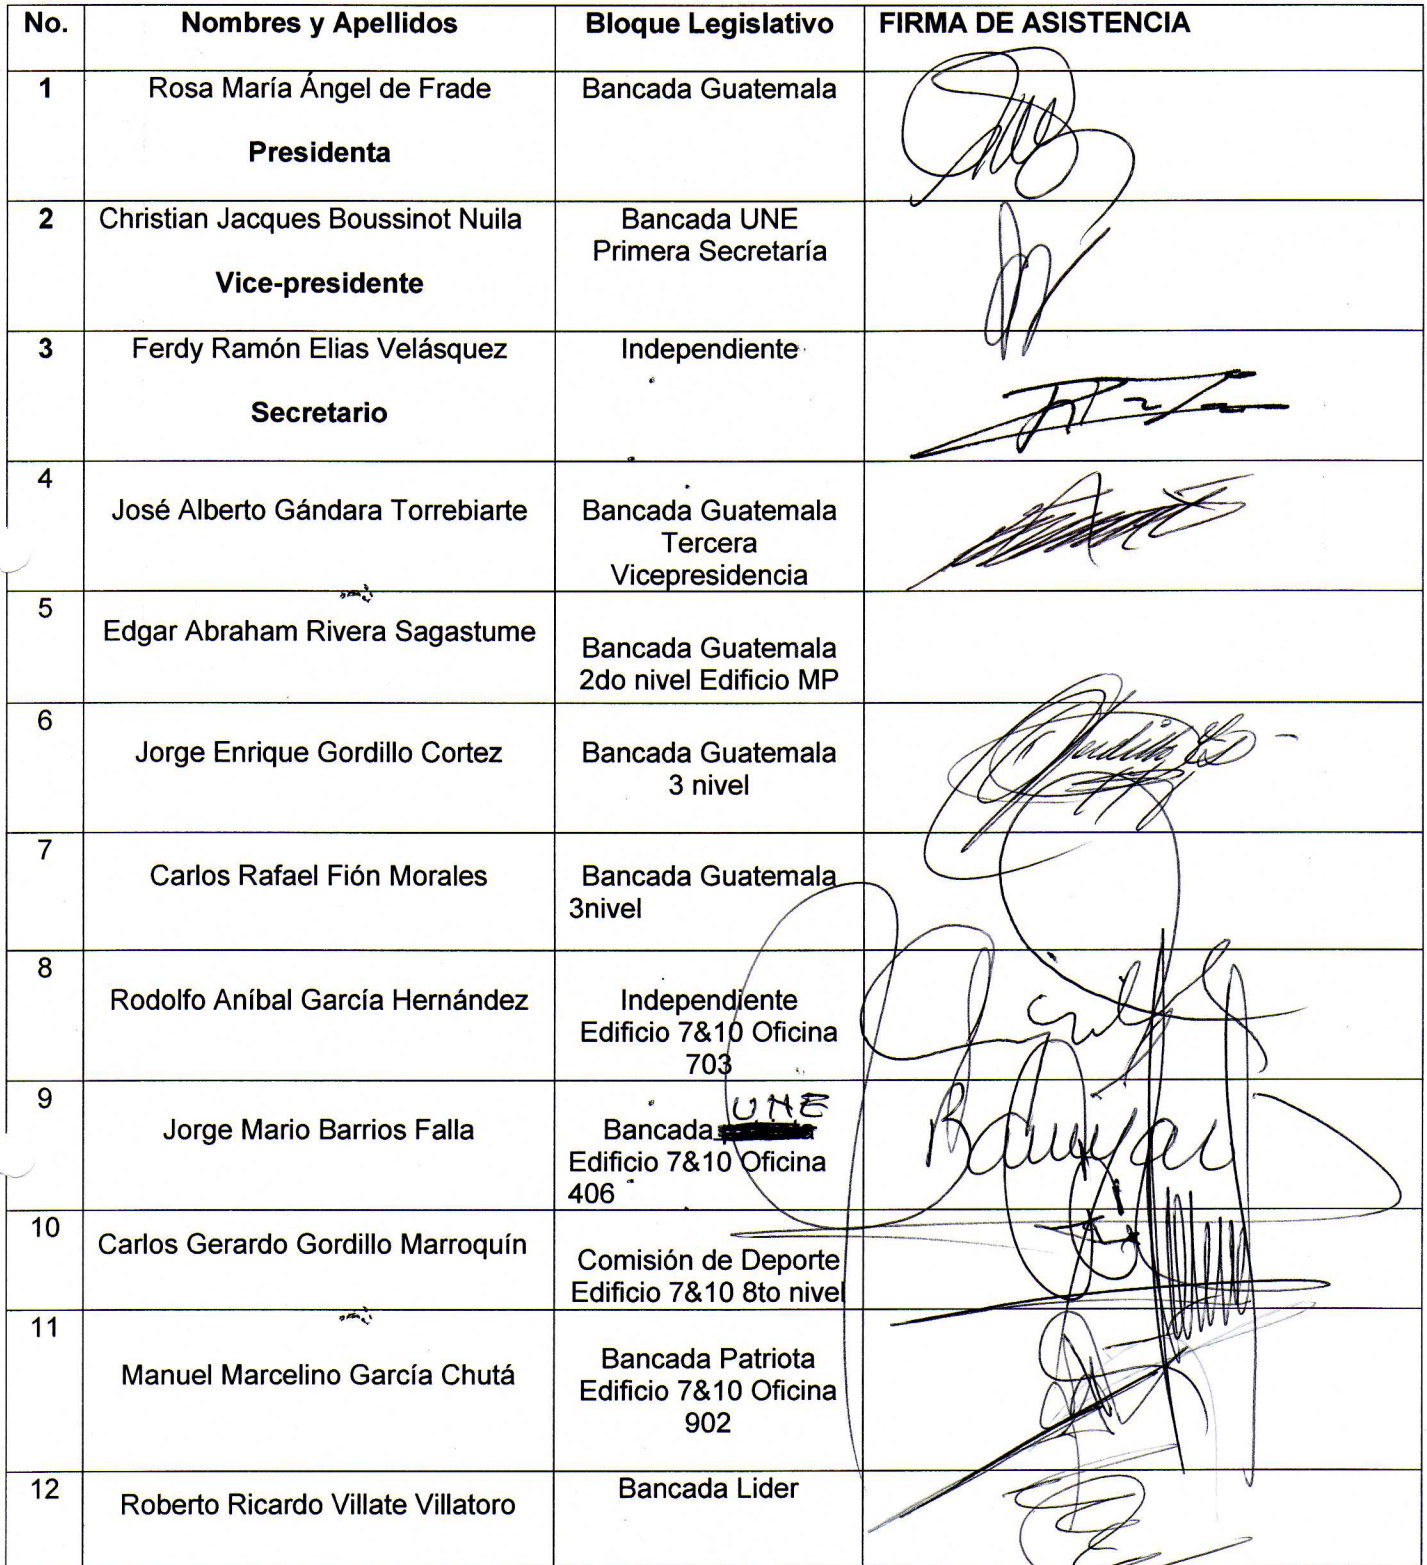 No. Nombres y Apellidos Bloque Legislativo FIRMA DE ASISTENCIA
1 Rosa María Ángel de Frade Bancada Guatemala
Presidenta
2 Christian Jacques Boussinot Nuila Bancada UNE
Primera Secretaría
Vice-presidente
3 Ferdy Ramón Elias Velásquez Independiente
Secretario
4
José Alberto Gándara Torrebiarte Bancada Guatemala
Tercera
Vicepresidencia
5
Edgar Abraham Rivera Sagastume
Bancada Guatemala
2do nivel Edificio MP
6
Jorge Enrique Gordillo Cortez Bancada Guatemala
3 nivel
7
Carlos Rafael Fión Morales Bancada Guatemala
3nivel
8
Rodolfo Aníbal García Hernández Independiente
Edificio 7&10 Oficina
703
9
UNE
Jorge Mario Barrios Falla Bancada
Edificio 7&10 Oficina
406
10
Carlos Gerardo Gordillo Marroquín
Comisión de Deporte
Edificio 7&10 8to nivel
11
Manuel Marcelino García Chutá Bancada Patriota
Edificio 7&10 Oficina
902
12 Bancada Lider
Roberto Ricardo Villate Villatoro